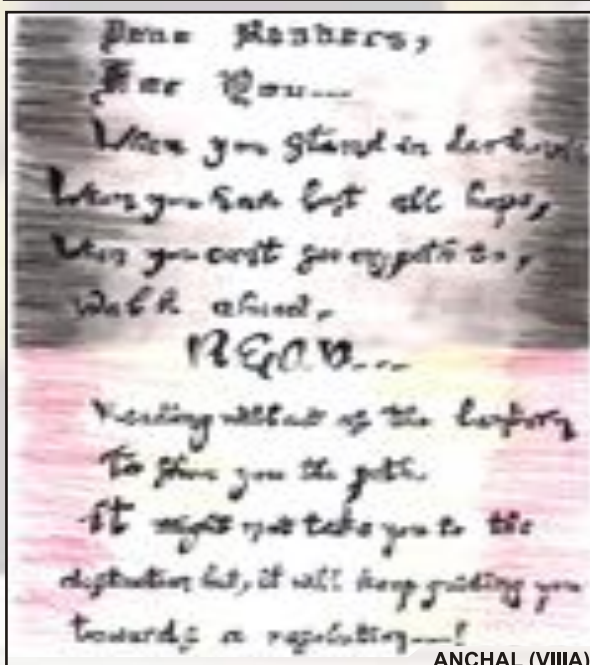 Dear Readers,
For You...
When you stand in darkness
When you have lost all hope,
When you can't see any path to,
walk ahead,
READ...
Reading will act as the
To show you the path.
It might not take you to the
destination but, it will keep guiding you
towards a ...!
ANCHAL (VIIIA)